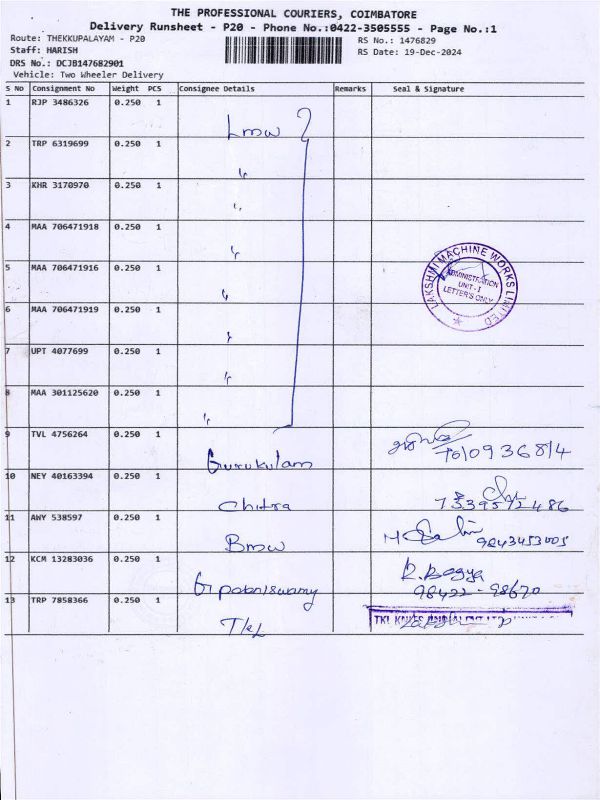 THE PROFESSIONAL COURIERS, COIMBATORE
Delivery Runsheet - P20 - Phone No.:0422-3505555 - Page No.:1
Route: THEKKUPALAYAM - P20
RS No.: 1476829
Staff: HARISH
RS Date: 19-Dec-2024
DRS No.: DCJB147682901
Vehicle: Two Wheeler Delivery
S No Consignment No Weight PCS Consignee Details Remarks Seal & Signature
1 RJP 3486326 0.250 1
Lmw
2 TRP 6319699 0.250 1
"
3 KHR 3170970 0.250 1
"
4 MAA 706471918 0.250 1
"
5 MAA 706471916 0.250 1
"
6 MAA 706471919 0.250 1
"
7 UPT 4077699 0.250 1
"
8 MAA 301125620 0.250 1
"
LAKSHMI MACHINE WORKS LIMITED
ADMINISTRATION
UNIT - I
LETTER'S ONLY
9 TVL 4756264 0.250 1
Gurukulam
10 NEY 40163394 0.250 1
Chitra
11 AWY 538597 0.250 1
Bmw
9843453005
12 KCM 13283036 0.250 1
R. Bagya
98422 - 98670
13 TRP 7858366 0.250 1
TKL